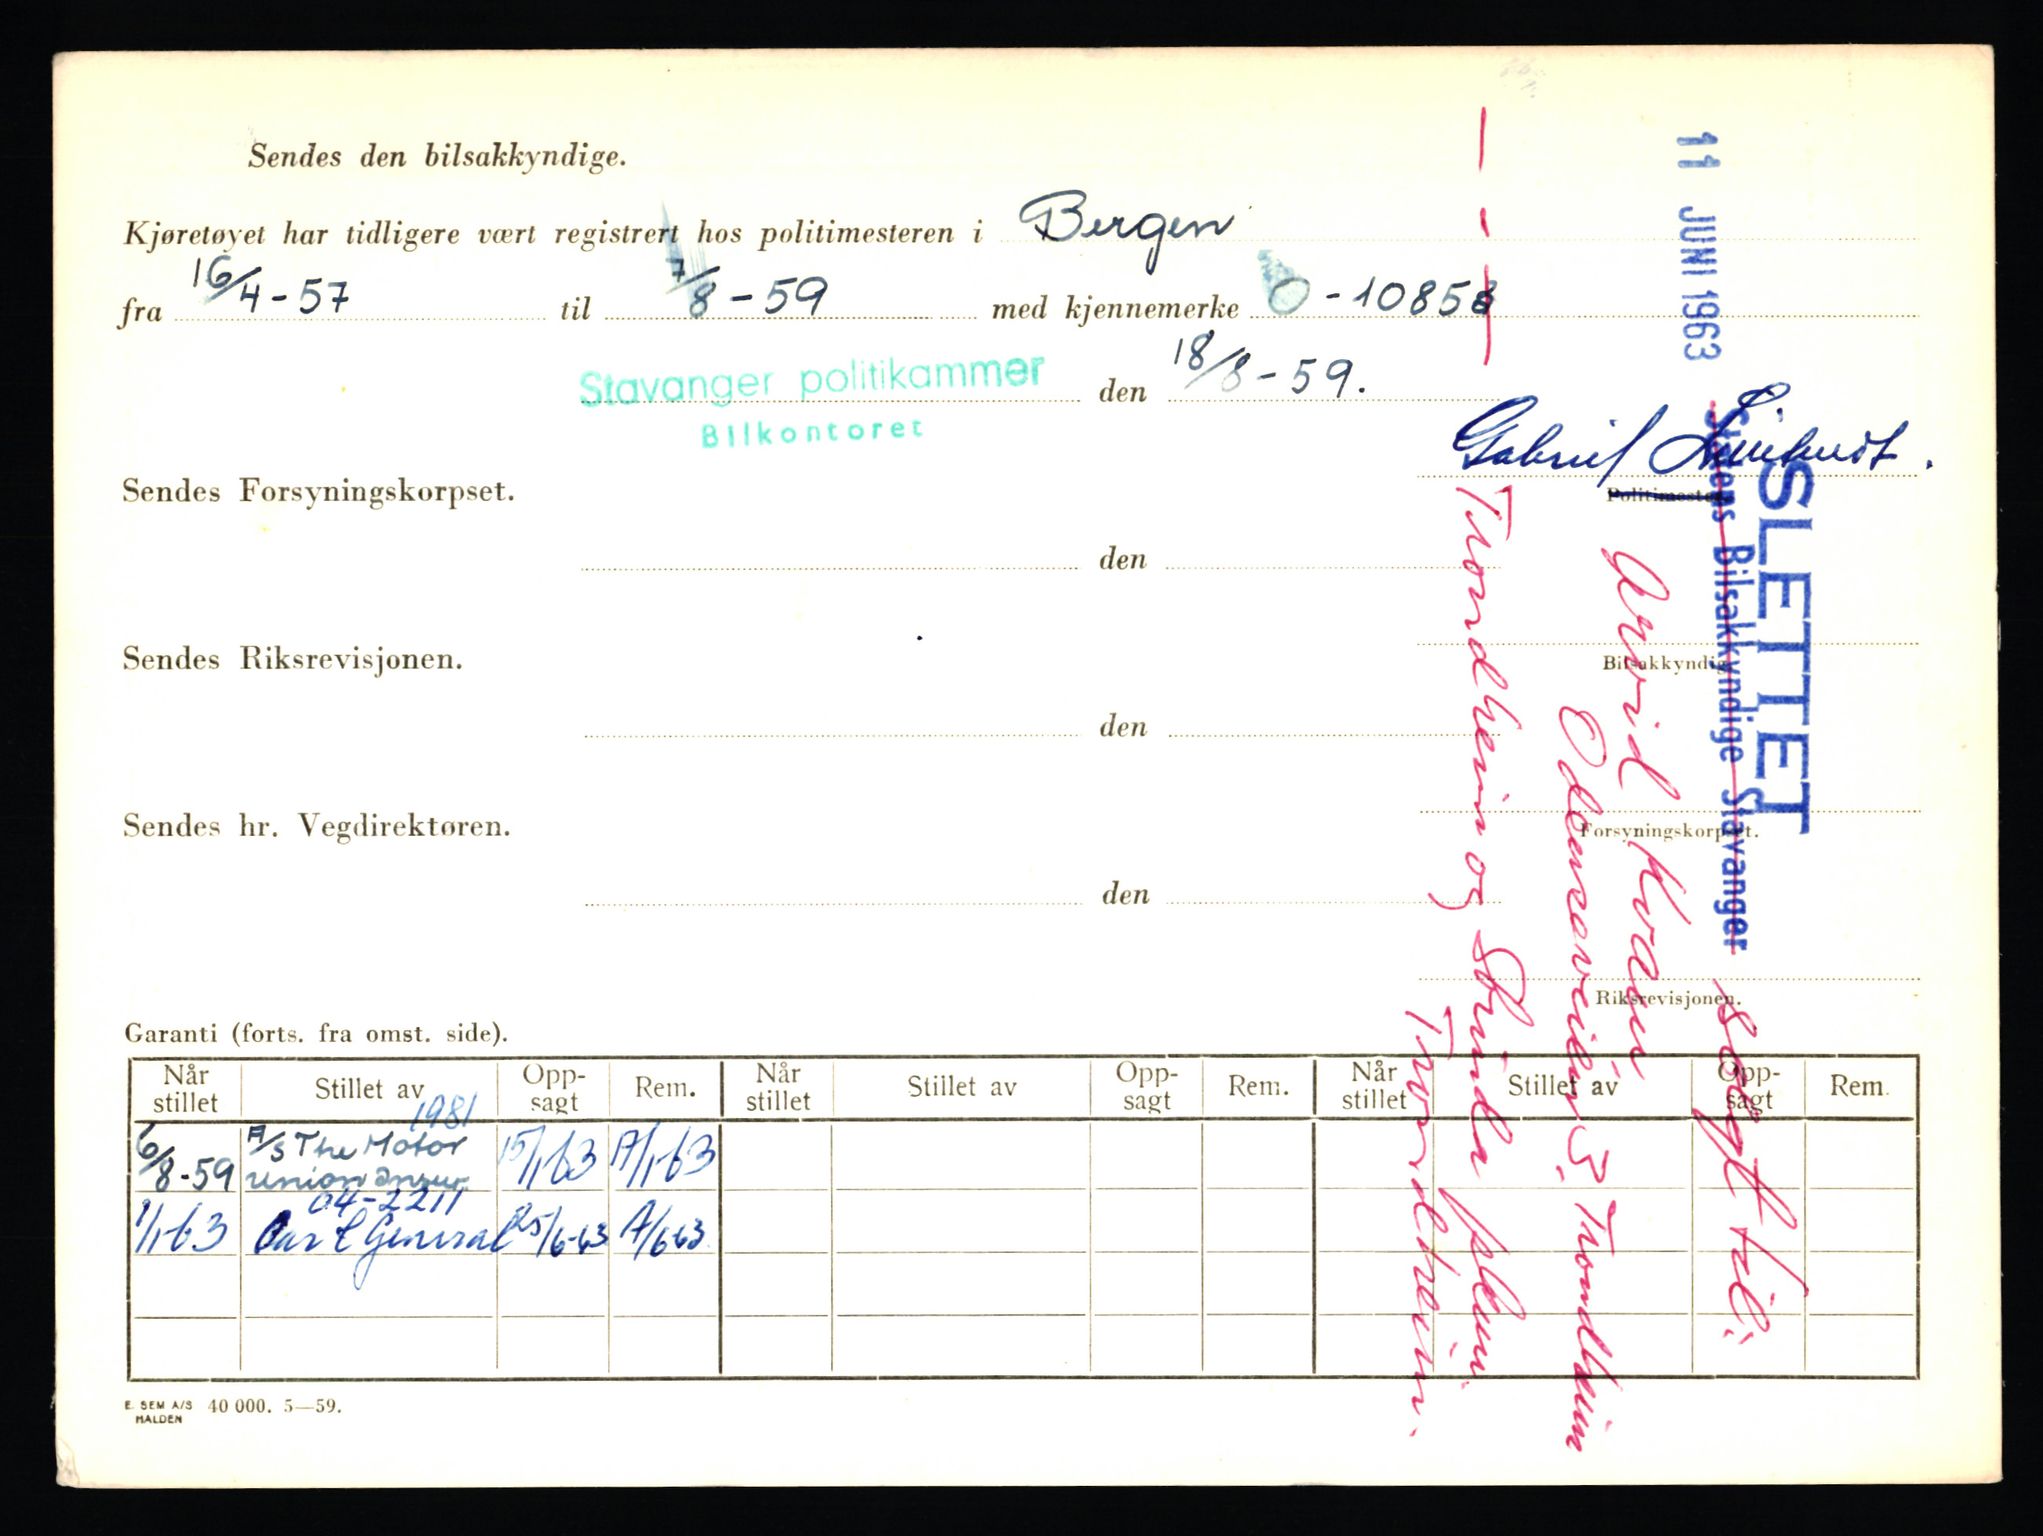 Sendes den bilsakkyndige.
Kjøretøyet har tidligere vært registrert hos politimesteren i Bergen
fra 16/4-57 til 7/8-59 med kjennemerke O-10858
Stavanger politikammer den 18/8-59.
Bilkontoret
Gabriel
Politimester
Sendes Forsyningskorpset.
den
Bilsakkyndig
Sendes Riksrevisjonen.
den
Forsyningskorpset.
Sendes hr. Vegdirektøren.
den
Riksrevisjonen.
11 JUNI 1963
SLETTET
Statens Bilsakkyndige Stavanger
solgt til:
Arvid Kvam
Odenseveien 3, Trondheim
Trondheim og Strinda
Trondheim.
Garanti (forts. fra omst. side).
Når stillet Stillet av Opp-sagt Rem. Når stillet Stillet av Opp-sagt Rem. Når stillet Stillet av Opp-sagt Rem.
1981
6/8-59 A/S The Motor union Insur. 15/1-63 A/1-63
04-2211
1/1-63 Car & General 25/6-63 A/6-63
E. SEM A/S HALDEN 40 000. 5—59.